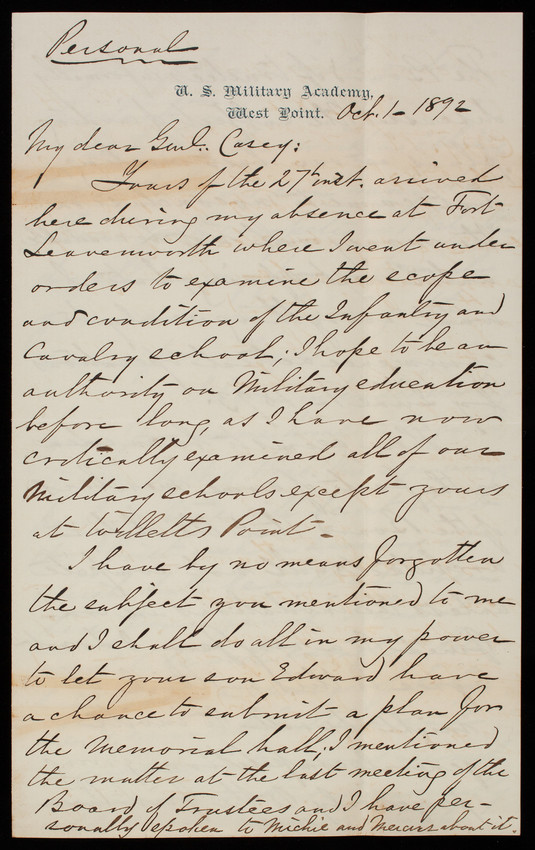 Personal
U. S. Military Academy,
West Point. Oct. 1 - 1892
My dear Genl. Casey:
Yours of the 27th inst. arrived
here during my absence at Fort
Leavenworth where I went under
orders to examine the scope
and condition of the Infantry and
Cavalry school; I hope to be an
authority on Military education
before long, as I have now
critically examined all of our
Military schools except yours
at Willetts Point -
I have by no means forgotten
the subject you mentioned to me
and I shall do all in my power
to let your son Edward have
a chance to submit a plan for
the Memorial hall, I mentioned
the matter at the last meeting of the
Board of Trustees and I have per-
sonally spoken to Michie and Mercur about it.